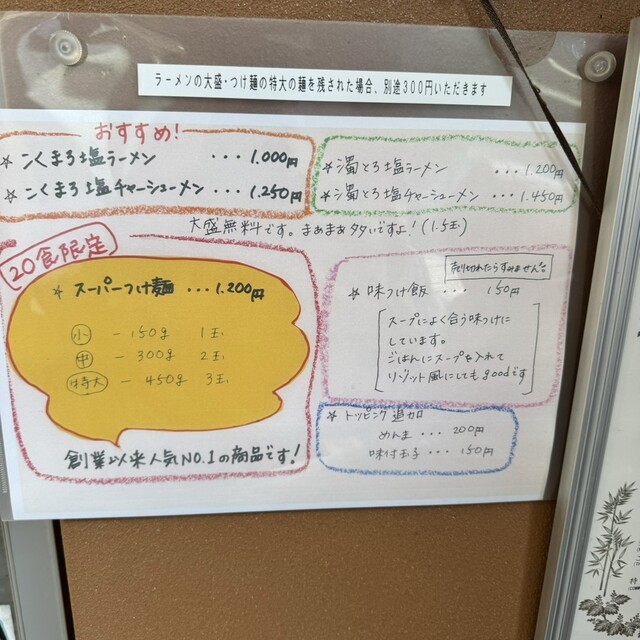 ラーメンの大盛・つけ麺の特大の麺を残された場合、別途300円いただきます
おすすめ!
☆ こくまろ塩ラーメン ・・・ 1.000円
☆ こくまろ塩チャーシューメン ・・・ 1.250円
☆ 濁とろ塩ラーメン ・・・ 1.200円
☆ 濁とろ塩チャーシューメン ・・・ 1.450円
大盛無料です。まあまあ多いですよ!(1.5玉)
20食限定
☆ スーパーつけ麺 ・・・ 1.200円
小 - 150g 1玉
中 - 300g 2玉
特大 - 450g 3玉
創業以来人気NO.1の商品です!
売り切れたらすみません
☆ 味つけ飯 ・・・ 150円
スープによく合う味つけに
しています。
ごはんにスープを入れて
リゾット風にしてもgoodです
☆ トッピング追加
めんま ・・・ 200円
味付玉子 ・・・ 150円